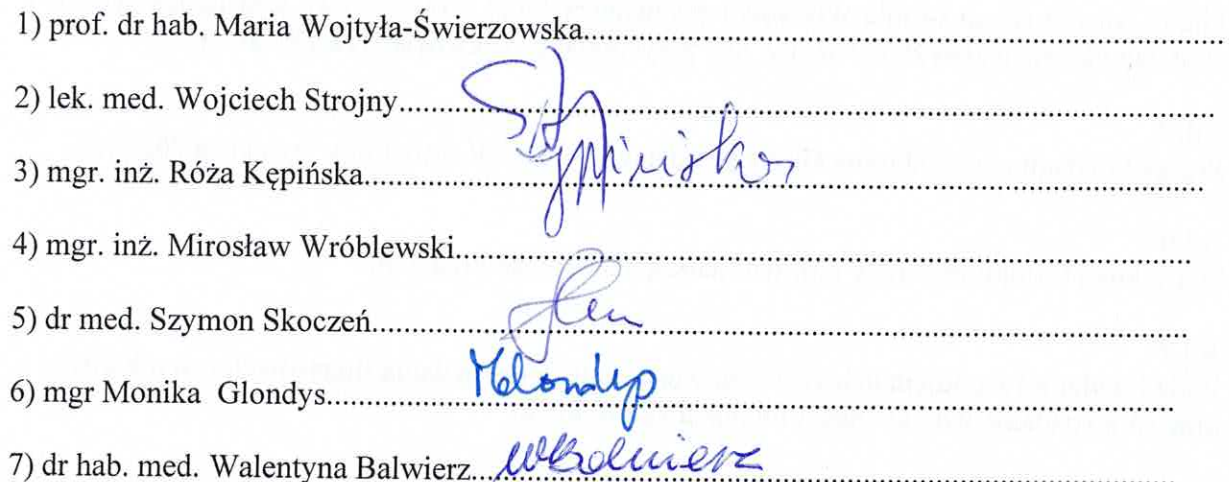 1) prof. dr hab. Maria Wojtyła-Świerzowska..........................................................................................
2) lek. med. Wojciech Strojny..........................................................................................
3) mgr. inż. Róża Kępińska..........................................................................................
4) mgr. inż. Mirosław Wróblewski..........................................................................................
5) dr med. Szymon Skoczeń..........................................................................................
6) mgr Monika Glondys..........................................................................................
7) dr hab. med. Walentyna Balwierz..........................................................................................